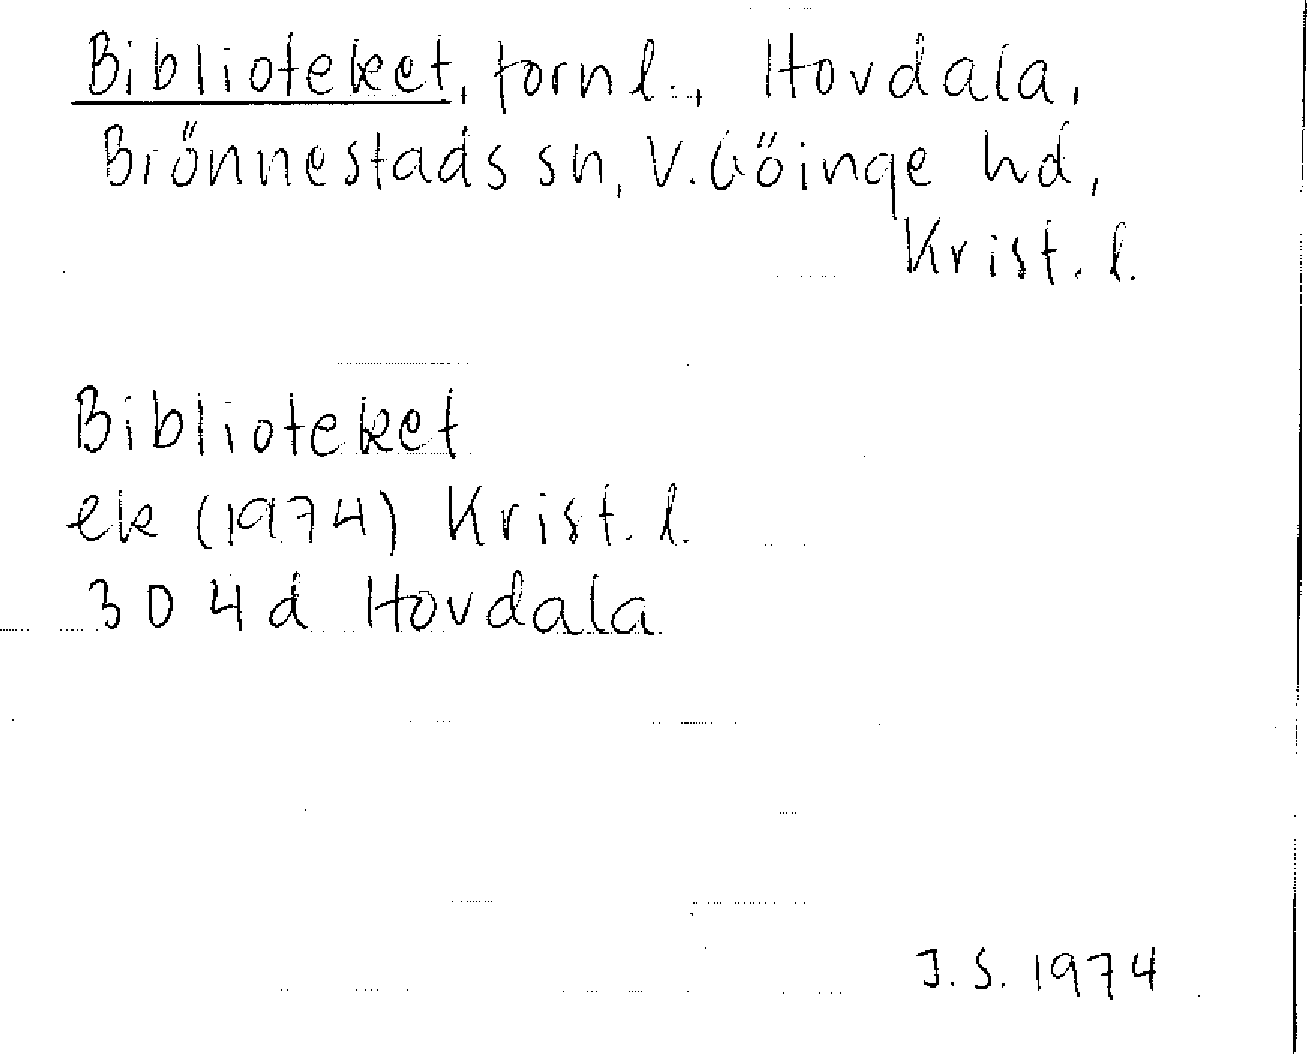 Biblioteket, tornl., Hovdala,
Brönnestads sn, V. Göinge hd,
Krist. l.
Biblioteket
ek (1974) Krist. l.
3 0 4 d Hovdala
J. S. 1974